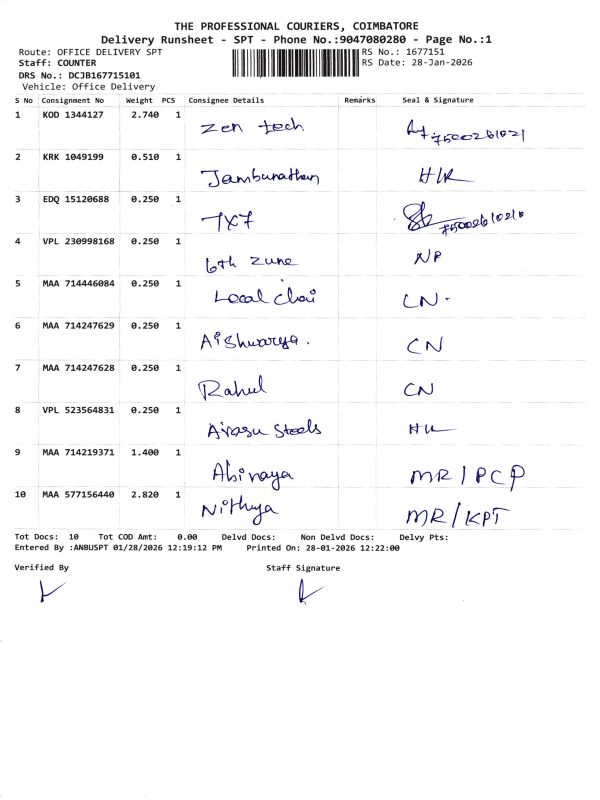 THE PROFESSIONAL COURIERS, COIMBATORE
Delivery Runsheet - SPT - Phone No.:9047080280 - Page No.:1
Route: OFFICE DELIVERY SPT RS No.: 1677151
Staff: COUNTER RS Date: 28-Jan-2026
DRS No.: DCJB167715101
Vehicle: Office Delivery
S No Consignment No Weight PCS Consignee Details Remarks Seal & Signature
1 KOD 1344127 2.740 1 Zen tech 7500261021
2 KRK 1049199 0.510 1 Jambunathan H/R
3 EDQ 15120688 0.250 1 7X7
4 VPL 230998168 0.250 1 6th zune NP
5 MAA 714446084 0.250 1 Local Chai CN.
6 MAA 714247629 0.250 1 Aishwarya. CN
7 MAA 714247628 0.250 1 Rahul CN
8 VPL 523564831 0.250 1 Arasu Steels
9 MAA 714219371 1.400 1 Abinaya MR/PCP
10 MAA 577156440 2.820 1 Nithya MR/KPT
Tot Docs: 10 Tot COD Amt: 0.00 Delvd Docs: Non Delvd Docs: Delvy Pts:
Entered By :ANBUSPT 01/28/2026 12:19:12 PM Printed On: 28-01-2026 12:22:00
Verified By Staff Signature